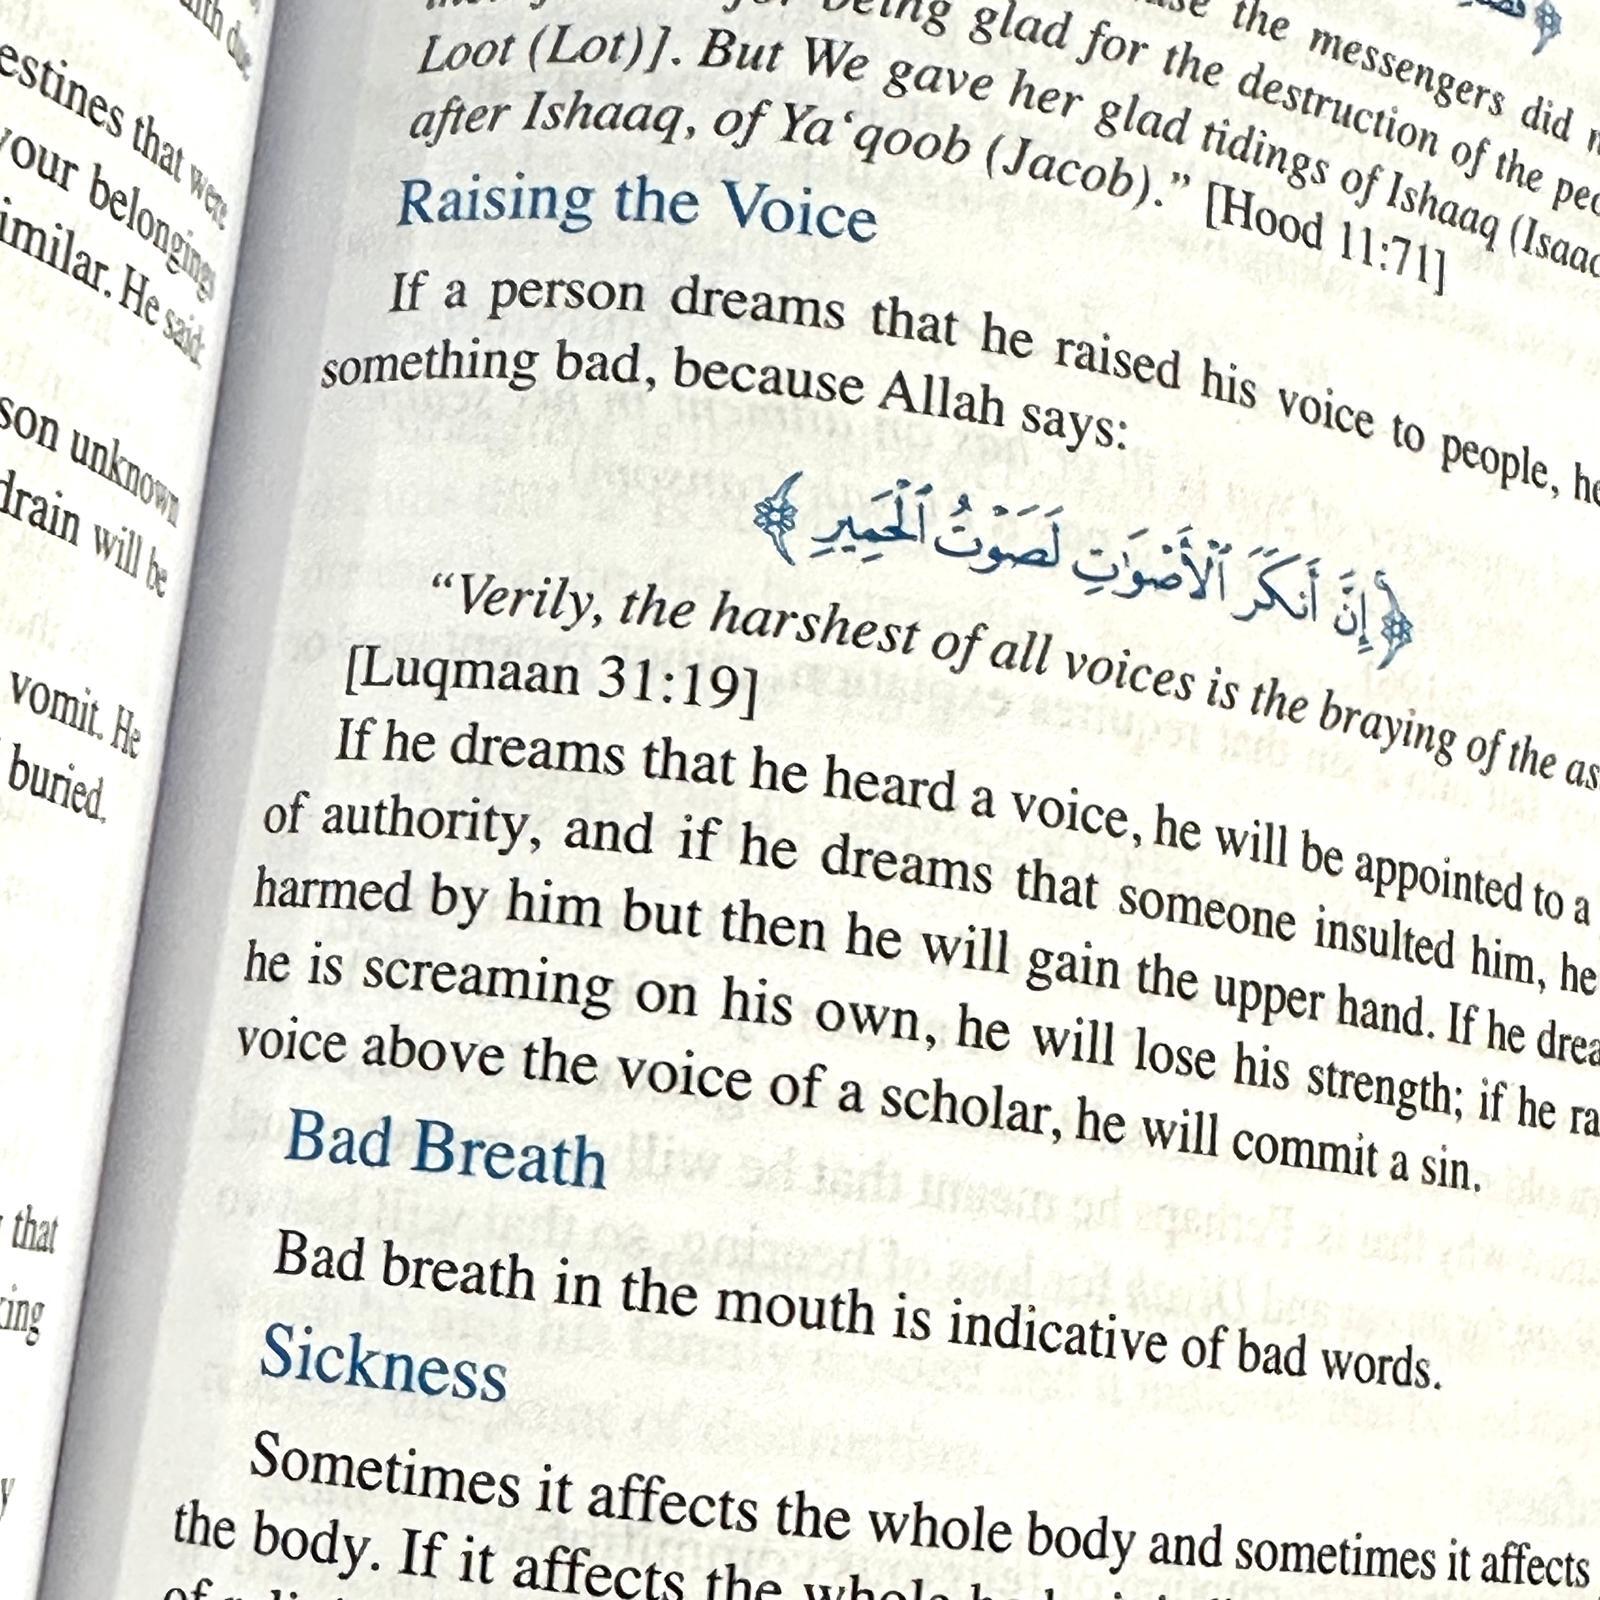 ith due
estines that were
your belongings
imilar. He said:
son unknown
drain will be
vomit. He
buried.
that
king
y
being glad for the destruction of the peo
the messengers did n
Loot (Lot)]. But We gave her glad tidings of Ishaaq (Isaac
after Ishaaq, of Ya‘qoob (Jacob).” [Hood 11:71]
Raising the Voice
If a person dreams that he raised his voice to people, he
something bad, because Allah says:
﴿إِنَّ أَنكَرَ ٱلْأَصْوَٰتِ لَصَوْتُ ٱلْحَمِيرِ﴾
“Verily, the harshest of all voices is the braying of the as
[Luqmaan 31:19]
If he dreams that he heard a voice, he will be appointed to a
of authority, and if he dreams that someone insulted him, he
harmed by him but then he will gain the upper hand. If he drea
he is screaming on his own, he will lose his strength; if he ra
voice above the voice of a scholar, he will commit a sin.
Bad Breath
Bad breath in the mouth is indicative of bad words.
Sickness
Sometimes it affects the whole body and sometimes it affects
the body. If it affects the whole